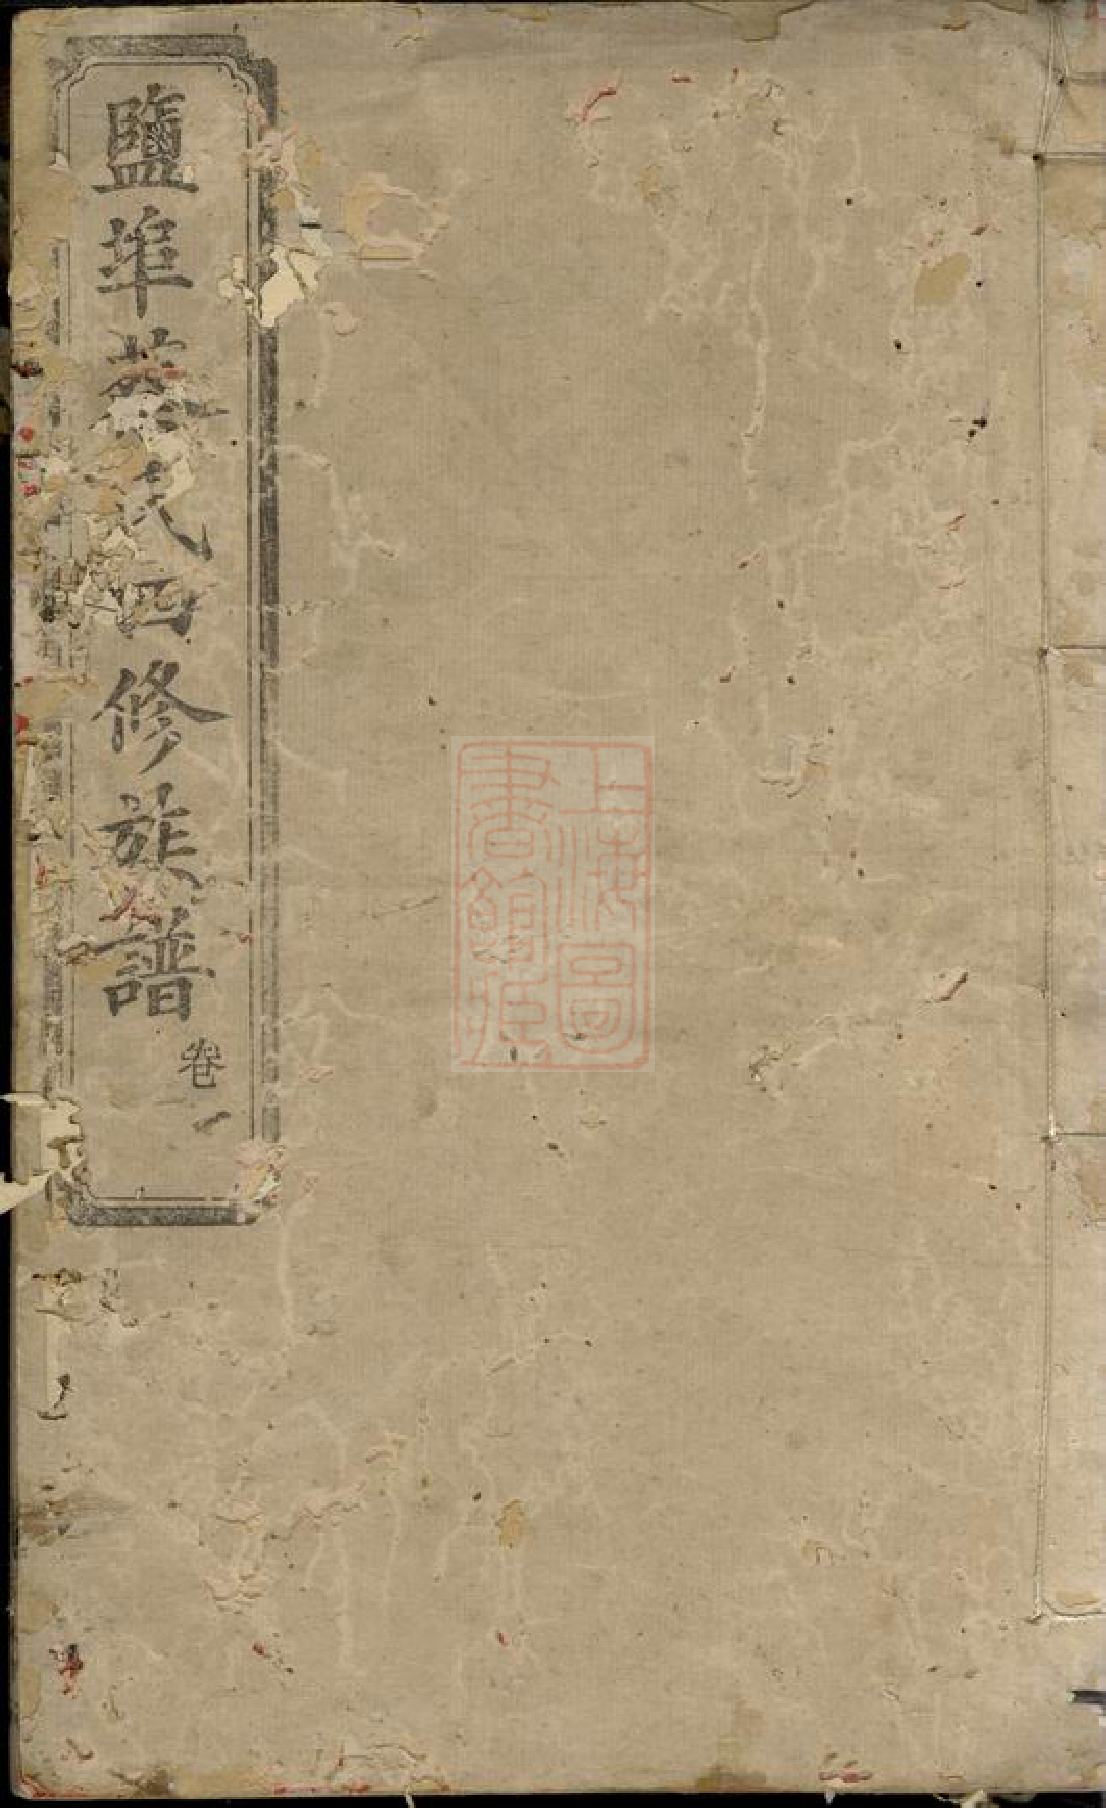 鹽埠氏四修族譜
卷一
上海圖書館藏